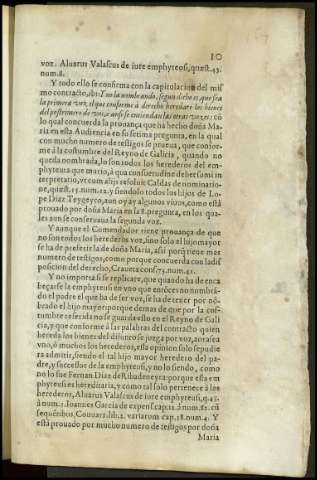 10
voz. Aluarus Valascus de iure emphyteos, quæst. 43.
num. 8.
Y todo ello se confirma con la capitulacion del mis
mo contracto, ibi: Y no la nombrando, segun dicho es, que sea
la primera voz, el que conforme à derecho heredare los bienes
del postrimero de vos, e ansi se entiendan las otras vozes: cõ
lo qual concuerda la prouança que ha hecho doña Ma
ria en esta Audiencia en su setima pregunta, en la qual
con mucho numero de testigos se prueua, que confor
me à la costumbre del Reyno de Galicia, quando no
queda nombrada, lo son todos los herederos del em-
phyteuta que murio, à qua consuetudine debet sumi in
terpretatio, vt cum alijs resoluit Caldas de nominatio-
ne, quæst. 15. num. 12. y siendolo todos los hijos de Lo-
pe Diaz Teygeyro, aun oy ay algunos viuos, como està
prouado por doña Maria en la 8. pregunta, en los qua-
les aun se conseruaua la segunda voz.
Y aunque el Comendador tiene prouança de que
no son todos los herederos voz, sino solo el hijo mayor
se ha de preferir la de doña Maria, assi porq̃ tiene mas
numero de testigos, como porque concuerda con la dis
posicion del derecho, Craueta cons. 75. num. 41.
Y no importa si se replicare, que quando ha de enca
beçarse la emphyteusi en vno que entõces no nombrã-
do el padre el que ha de ser voz, se ha de tener por nõ-
brado el hijo mayor: porque demas de que por la cos-
tumbre referida no se guarda esto en el Reyno de Gali
cia, y que conforme à las palabras del contracto quien
hereda los bienes del difunto se juzga por voz, aora sea
vno, ò muchos los herederos, esta opinion solo se pudie
ra admitir, siendo el tal hijo mayor heredero del pa-
dre, y successor de la emphyteusi, y no lo siendo, como
no lo fue Fernan Diaz de Ribadeneyra: porque esta em
phyteusi es hereditaria, y como tal solo pertenece à los
herederos, Aluarus Valascus de iure emphyteusi, q. 43.
à num. 1. Ioannes Garcia de expens. cap. 12. à num. 81. cũ
sequẽtibus, Couuar. 2. lib. 2. variarum cap. 18. num. 4. Y
està prouado por mucho numero de testigos por doña
Maria